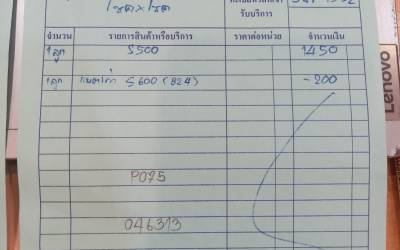 โชคxโชค
รับบริการ
จำนวน รายการสินค้าหรือบริการ ราคาต่อหน่วย จำนวนเงิน
1 ลูก S500 1450
1 ลูก S600 (824) -200
P075
046313
Lenovo